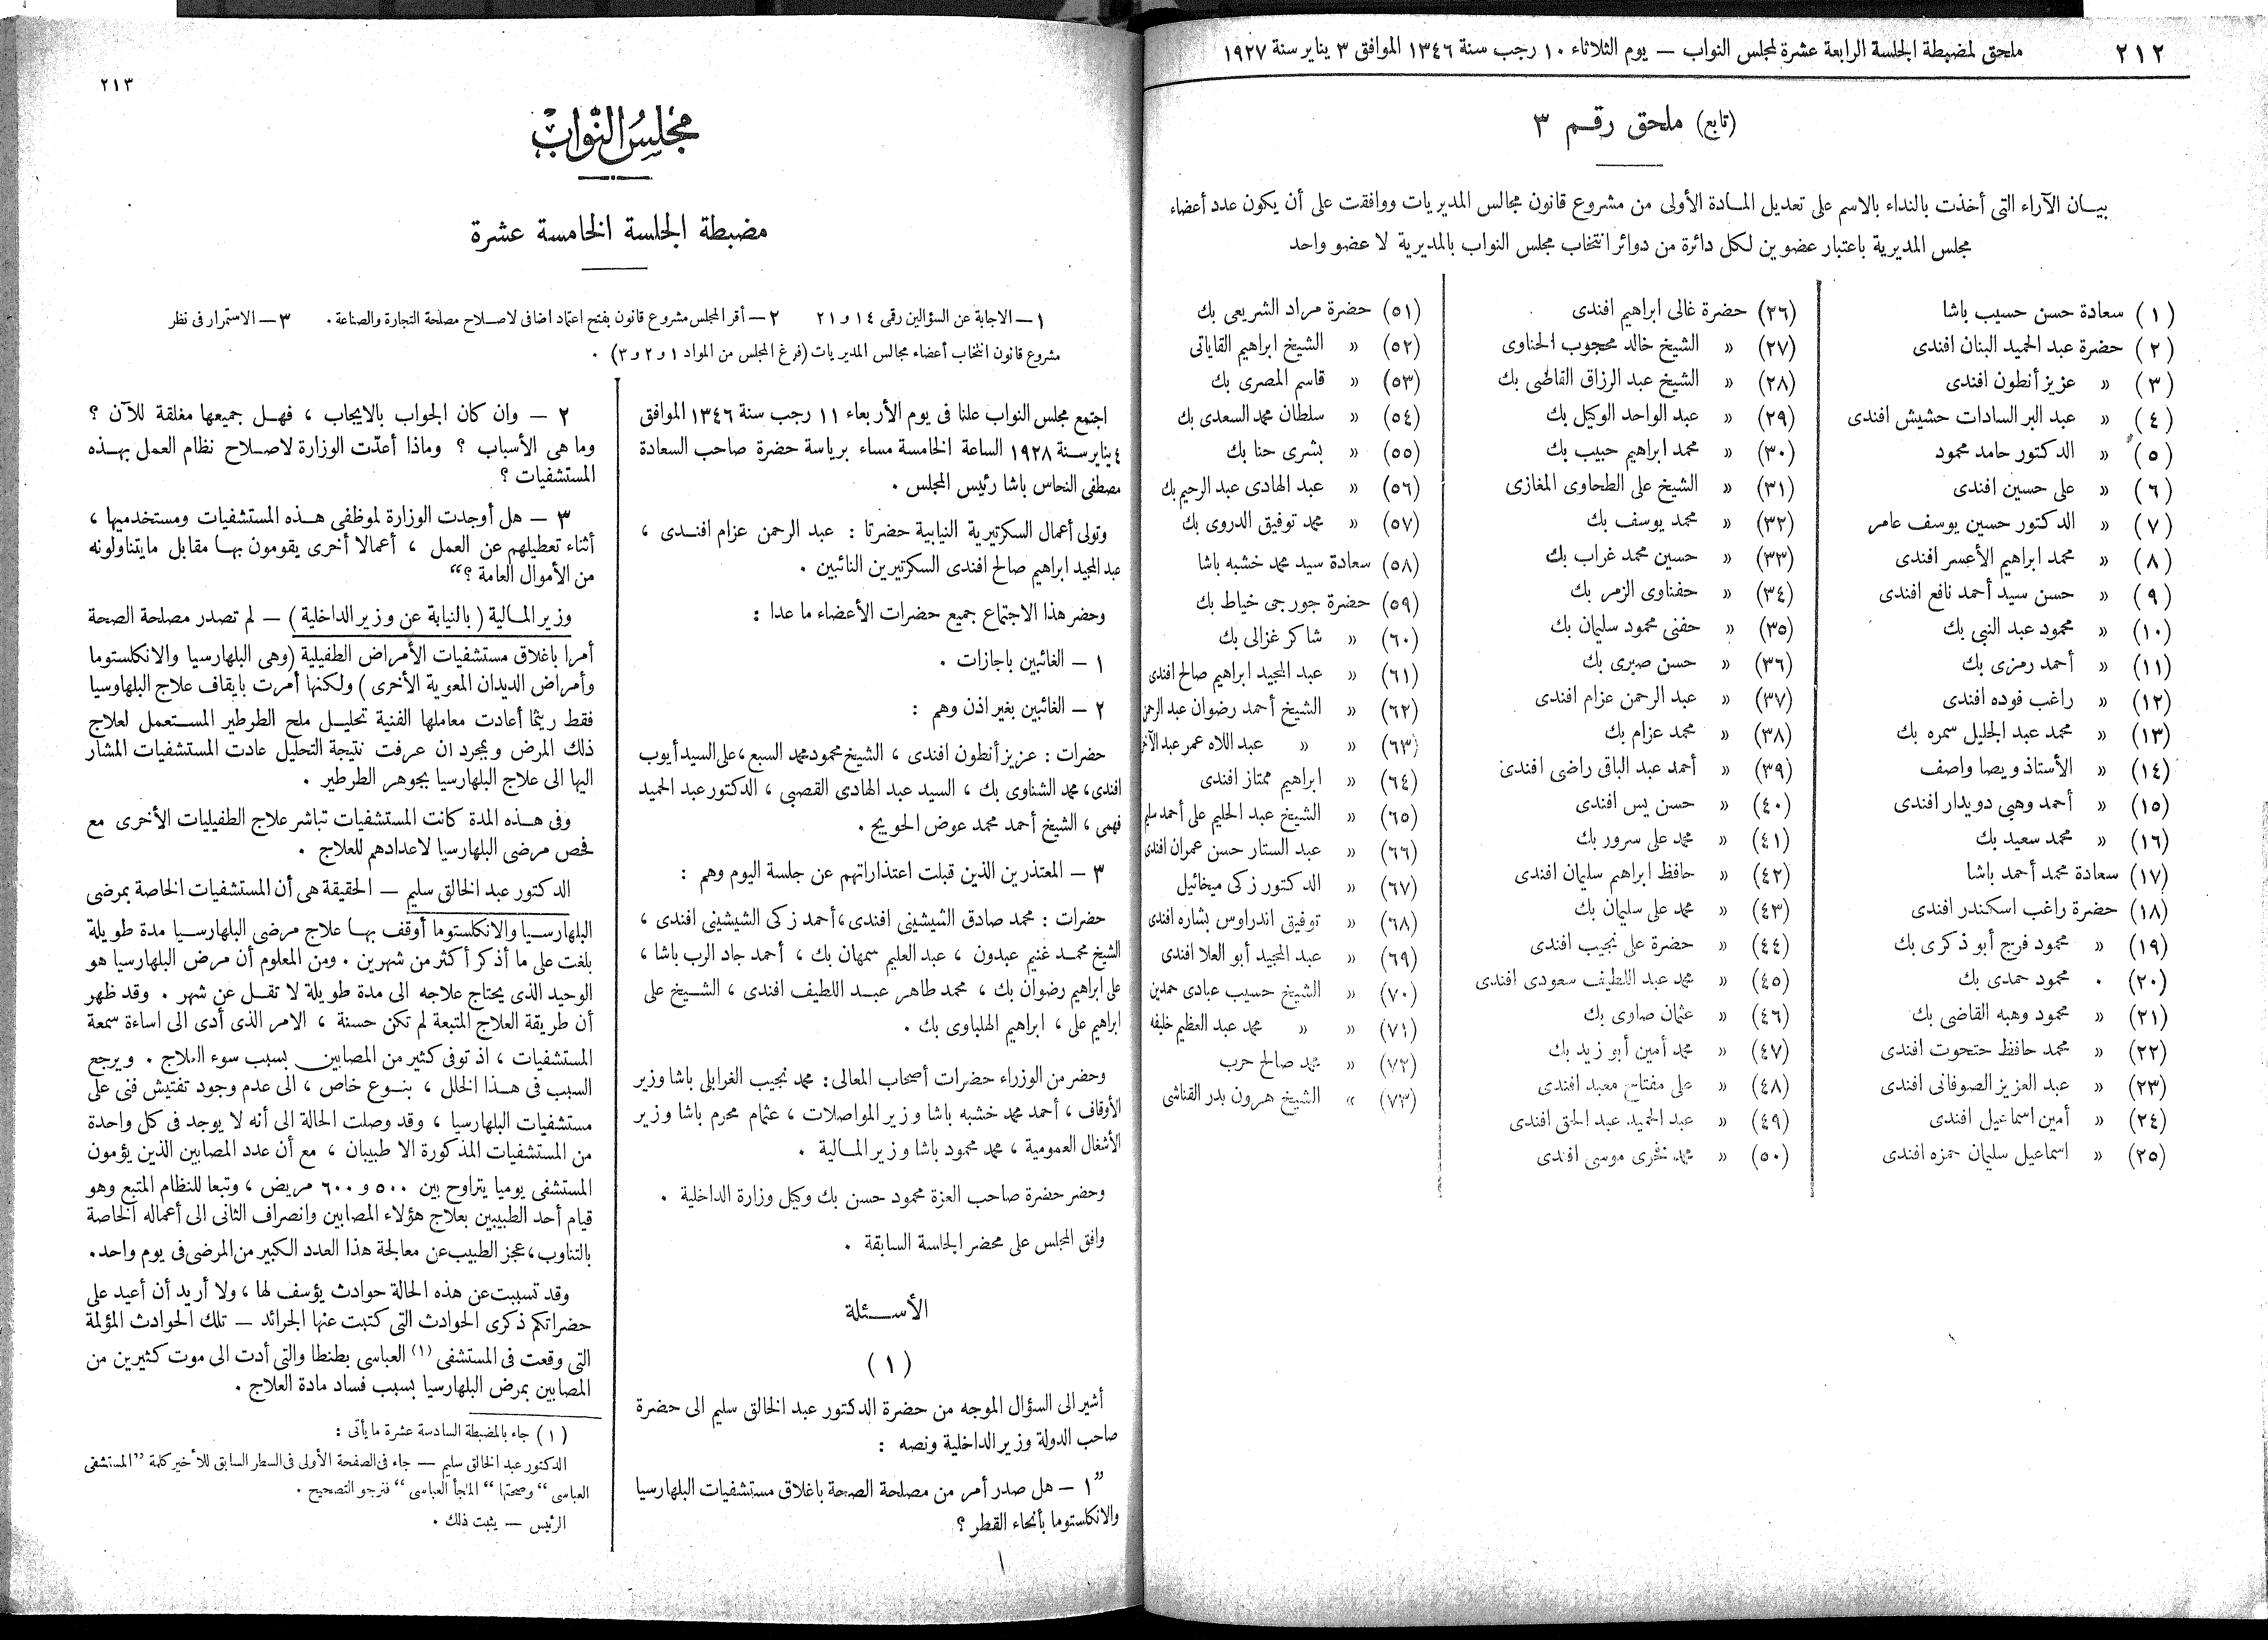 ٢١٢
ملحق لمضبطة الجلسة الرابعة عشرة لمجلس النواب — يوم الثلاثاء ١٠ رجب سنة ١٣٤٦ الموافق ٣ يناير سنة ١٩٢٧
(تابع) ملحق رقم ٣
بيان الآراء التى أخذت بالنداء بالاسم على تعديل المادة الأولى من مشروع قانون مجالس المديريات ووافقت على أن يكون عدد أعضاء
مجلس المديرية باعتبار عضوين لكل دائرة من دوائر انتخاب مجلس النواب بالمديرية لا عضو واحد
(١) سعادة حسن حسيب باشا
(٢) حضرة عبد الحميد البنان افندى
(٣) » عزيز أنطون افندى
(٤) » عبد البر السادات حشيش افندى
(٥) » الدكتور حامد محمود
(٦) » على حسين افندى
(٧) » الدكتور حسين يوسف عامر
(٨) » محمد ابراهيم الأعسر افندى
(٩) » حسن سيد أحمد نافع افندى
(١٠) » محمود عبد النبى بك
(١١) » أحمد رمزى بك
(١٢) » راغب فوده افندى
(١٣) » محمد عبد الجليل سمره بك
(١٤) » الأستاذ ويصا واصف
(١٥) » أحمد وهبى دويدار افندى
(١٦) » محمد سعيد بك
(١٧) سعادة محمد أحمد باشا
(١٨) حضرة راغب اسكندر افندى
(١٩) » محمود فريج أبو ذكرى بك
(٢٠) • محمود حمدى بك
(٢١) » محمود وهبه القاضى بك
(٢٢) » محمد حافظ حتحوت افندى
(٢٣) » عبد العزيز الصوفانى افندى
(٢٤) » أمين اسماعيل افندى
(٢٥) » اسماعيل سليمان حمزه افندى
(٢٦) حضرة غالى ابراهيم افندى
(٢٧) » الشيخ خالد محجوب الحناوى
(٢٨) » الشيخ عبد الرزاق القاضى بك
(٢٩) » عبد الواحد الوكيل بك
(٣٠) » محمد ابراهيم حبيب بك
(٣١) » الشيخ على الطحاوى المغازى
(٣٢) » محمد يوسف بك
(٣٣) » حسين محمد غراب بك
(٣٤) » حفناوى الزمر بك
(٣٥) » حفنى محمود سليمان بك
(٣٦) » حسن صبرى بك
(٣٧) » عبد الرحمن عزام افندى
(٣٨) » محمد عزام بك
(٣٩) » أحمد عبد الباقى راضى افندى
(٤٠) » حسن يس افندى
(٤١) » محمد على سرور بك
(٤٢) » حافظ ابراهيم سليمان افندى
(٤٣) » محمد على سليمان بك
(٤٤) » حضرة على نجيب افندى
(٤٥) » محمد عبد اللطيف سعودى افندى
(٤٦) » عثمان صاوى بك
(٤٧) » محمد أمين أبو زيد بك
(٤٨) » على مفتاح معبد افندى
(٤٩) » عبد الحميد عبد الحق افندى
(٥٠) » محمد فخرى موسى افندى
(٥١) حضرة مراد الشريعى بك
(٥٢) » الشيخ ابراهيم القاياتى
(٥٣) » قاسم المصرى بك
(٥٤) » سلطان محمد السعدى بك
(٥٥) » بشرى حنا بك
(٥٦) » عبد الهادى عبد الرحيم بك
(٥٧) » محمد توفيق الدروى بك
(٥٨) سعادة سيد محمد خشبه باشا
(٥٩) حضرة جورجى خياط بك
(٦٠) » شاكر غزالى بك
(٦١) » عبد المجيد ابراهيم صالح افندى
(٦٢) » الشيخ أحمد رضوان عبد الرحمن
(٦٣) » » عبد اللاه عمر عبد الآخر
(٦٤) » ابراهيم ممتاز افندى
(٦٥) » الشيخ عبد الحليم على أحمد
(٦٦) » عبد الستار حسن عمران افندى
(٦٧) » الدكتور زكى ميخائيل
(٦٨) » توفيق اندراوس بشاره افندى
(٦٩) » عبد المجيد أبو العلا افندى
(٧٠) » الشيخ حسيب عبادى حمدين
(٧١) » » محمد عبد العظيم خليفه
(٧٢) » محمد صالح حرب
(٧٣) » الشيخ هرون بدر القناشى
٢١٣
مجلس النواب
مضبطة الجلسة الخامسة عشرة
١ — الاجابة عن السؤالين رقمى ١٤ و ٢١ ٢ — أقر المجلس مشروع قانون بفتح اعتماد اضافى لاصلاح مصلحة التجارة والصناعة . ٣ — الاستمرار فى نظر
مشروع قانون انتخاب أعضاء مجالس المديريات (فرغ المجلس من المواد ١ و ٢ و ٣) .
اجتمع مجلس النواب علنا فى يوم الأربعاء ١١ رجب سنة ١٣٤٦ الموافق
٤ يناير سنة ١٩٢٨ الساعة الخامسة مساء برياسة حضرة صاحب السعادة
مصطفى النحاس باشا رئيس المجلس .
وتولى أعمال السكرتيرية النيابية حضرتا : عبد الرحمن عزام افندى ،
عبد المجيد ابراهيم صالح افندى السكرتيرين النائبين .
وحضر هذا الاجتماع جميع حضرات الأعضاء ما عدا :
١ — الغائبين باجازات .
٢ — الغائبين بغير اذن وهم :
حضرات : عزيز أنطون افندى ، الشيخ محمود محمد السبع ، على السيد أيوب
افندى ، محمد الشناوى بك ، السيد عبد الهادى القصبى ، الدكتور عبد الحميد
فهمى ، الشيخ أحمد محمد عوض الحويج .
٣ — المعتذرين الذين قبلت اعتذاراتهم عن جلسة اليوم وهم :
حضرات : محمد صادق الشيشينى افندى ، أحمد زكى الشيشينى افندى ،
الشيخ محمد غنيم عبدون ، عبد العليم سمهان بك ، أحمد جاد الرب باشا ،
على ابراهيم رضوان بك ، محمد طاهر عبد اللطيف افندى ، الشيخ على
ابراهيم على ، ابراهيم الهلباوى بك .
وحضر من الوزراء حضرات أصحاب المعالى : محمد نجيب الغرابلى باشا وزير
الأوقاف ، أحمد محمد خشبه باشا وزير المواصلات ، عثمام محرم باشا وزير
الأشغال العمومية ، محمد محمود باشا وزير المالية .
وحضر حضرة صاحب العزة محمود حسن بك وكيل وزارة الداخلية .
وافق المجلس على محضر الجلسة السابقة .
الأسئلة
(١)
أشير الى السؤال الموجه من حضرة الدكتور عبد الخالق سليم الى حضرة
صاحب الدولة وزير الداخلية ونصه :
”١ — هل صدر أمر من مصلحة الصحة باغلاق مستشفيات البلهارسيا
والانكلستوما بأنحاء القطر ؟
٢ — وان كان الجواب بالايجاب ، فهل جميعها مغلقة للآن ؟
وما هى الأسباب ؟ وماذا أعدّت الوزارة لاصلاح نظام العمل بهذه
المستشفيات ؟
٣ — هل أوجدت الوزارة لموظفى هذه المستشفيات ومستخدميها ،
أثناء تعطيلهم عن العمل ، أعمالا أخرى يقومون بها مقابل مايتناولونه
من الأموال العامة ؟“
وزير المالية (بالنيابة عن وزير الداخلية) — لم تصدر مصلحة الصحة
أمرا باغلاق مستشفيات الأمراض الطفيلية (وهى البلهارسيا والانكلستوما
وأمراض الديدان المعوية الأخرى) ولكنها أمرت بايقاف علاج البلهاوسيا
فقط ريثما أعادت معاملها الفنية تحليل ملح الطوطير المستعمل لعلاج
ذلك المرض وبمجرد ان عرفت نتيجة التحليل عادت المستشفيات المشار
اليها الى علاج البلهارسيا بجوهر الطرطير .
وفى هذه المدة كانت المستشفيات تباشر علاج الطفيليات الأخرى مع
فحص مرضى البلهارسيا لاعدادهم للعلاج .
الدكتور عبد الخالق سليم — الحقيقة هى أن المستشفيات الخاصة بمرضى
البلهارسيا والانكلستوما أوقف بها علاج مرضى البلهارسيا مدة طويلة
بلغت على ما أذكر أكثر من شهرين . ومن المعلوم أن مرض البلهارسيا هو
الوحيد الذى يحتاج علاجه الى مدة طويلة لا تقل عن شهر . وقد ظهر
أن طريقة العلاج المتبعة لم تكن حسنة ، الامر الذى أدى الى اساءة سمعة
المستشفيات ، اذ توفى كثير من المصابين بسبب سوء العلاج . ويرجع
السبب فى هذا الخلل ، بنوع خاص ، الى عدم وجود تفتيش فنى على
مستشفيات البلهارسيا ، وقد وصلت الحالة الى أنه لا يوجد فى كل واحدة
من المستشفيات المذكورة الا طبيبان ، مع أن عدد المصابين الذين يؤمون
المستشفى يوميا يتراوح بين ٥٠٠ و ٦٠٠ مريض ، وتبعا للنظام المتبع وهو
قيام أحد الطبيبين بعلاج هؤلاء المصابين وانصراف الثانى الى أعماله الخاصة
بالتناوب ، عجز الطبيب عن معالجة هذا العدد الكبير من المرضى فى يوم واحد .
وقد تسببت عن هذه الحالة حوادث يؤسف لها ، ولا أريد أن أعيد على
حضراتكم ذكرى الحوادث التى كتبت عنها الجرائد — تلك الحوادث المؤلمة
التى وقعت فى المستشفى (١) العباسى بطنطا والتى أدت الى موت كثيرين من
المصابين بمرض البلهارسيا بسبب فساد مادة العلاج .
(١) جاء بالمضبطة السادسة عشرة مايأتى :
الدكتور عبد الخالق سليم — جاء فى الصفحة الأولى فى السطر السابق للأخير كلمة ”المستشفى
العباسى“ وصحتها ”الملجأ العباسى“ فنرجو التصحيح .
الرئيس — يثبت ذلك .